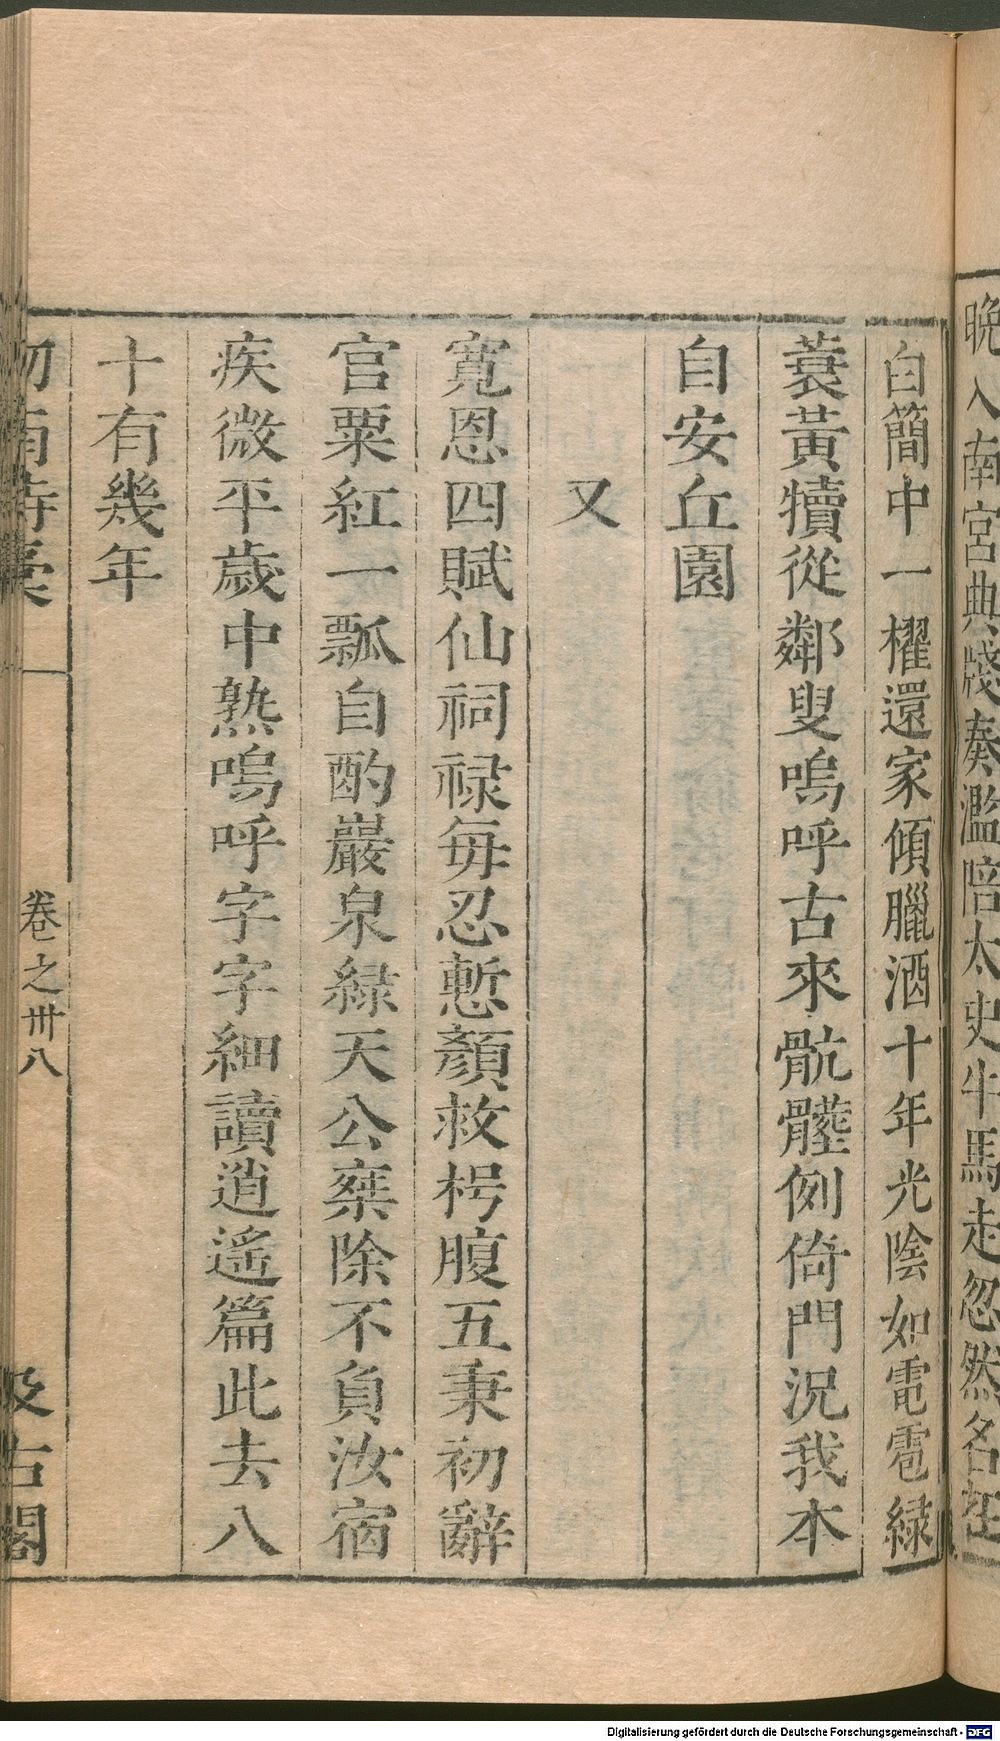 晩入南宮典牋奏濫陪太史牛馬走忽然名在
白簡中一櫂還家傾臘酒十年光陰如電雹綠
蓑黃犢從鄰叟嗚呼古來骯髒例倚門況我本
自安丘園
又
寬恩四賦仙祠禄每忍慙顏救枵腹五秉初辭
官粟紅一瓢自酌巖泉緑天公察除不負汝宿
疾微平歲中熟嗚呼字字細讀逍遙篇此去八
十有幾年
劒南詩稾
卷之卅八
汲古閣
Digitalisierung gefördert durch die Deutsche Forschungsgemeinschaft - DFG